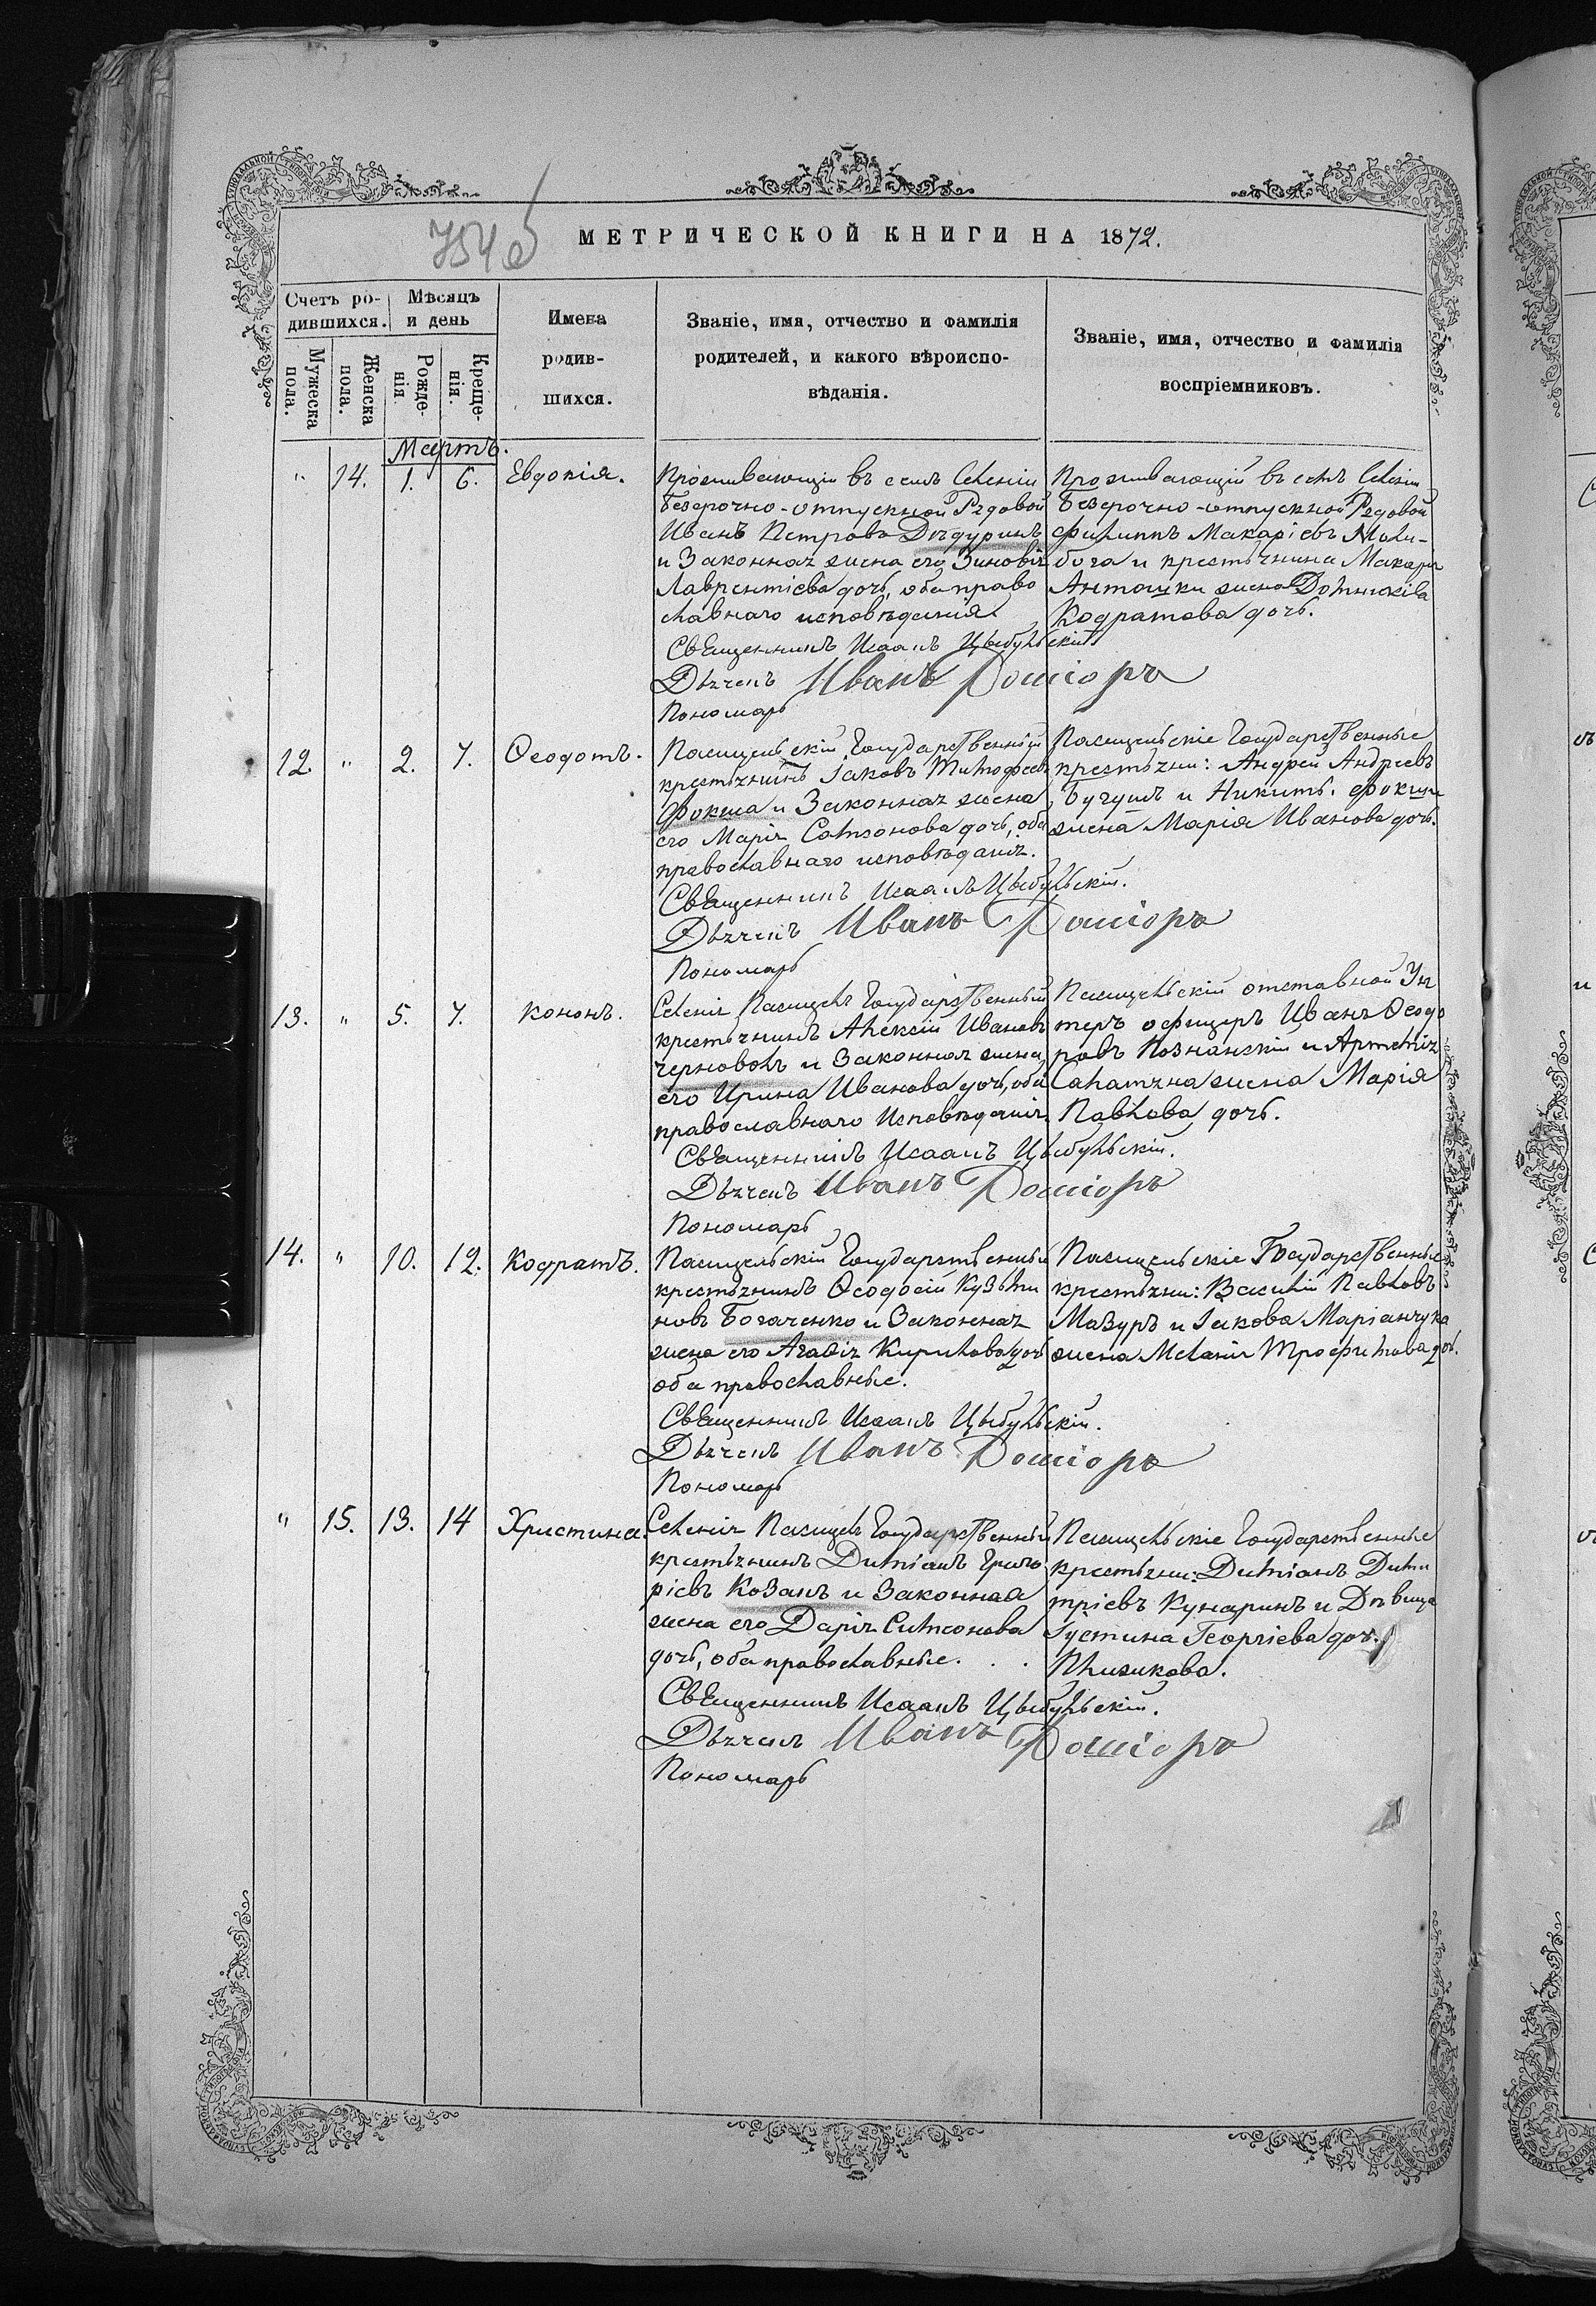 754 об
МЕТРИЧЕСКОЙ КНИГИ НА 1872.
Счетъ ро-
дившихся.
Мѣсяцъ
и день
Имена
родив-
шихся.
Званіе, имя, отчество и фамилія
родителей, и какого вѣроиспо-
вѣданія.
Званіе, имя, отчество и фамилія
воспріемниковъ.
Мужеска
пола.
Женска
пола.
Рожде-
нія.
Креще-
нія.
Мартъ.
" 14. 1. 6. Евдокія.
Проживающій въ семъ Селеніи
безсрочно-отпускной Рядовой
Иванъ Петровъ Дѣдуринъ
и Законная жена его Зиновія
Лаврентіева дочь, оба право
славнаго исповѣданія.
Проживающій въ семъ Селеніи
безсрочно-отпускной Рядовой
Филиппъ Макаріевъ Моли-
бога и крестьянина Макара
Антошки жена Домникія
Кодратова дочь.
Священникъ Исаакъ Цыбульскій
Дьячекъ Иванъ
Пономарь
12. " 2. 7. Ѳеодотъ.
Пасицельскій Государственный
крестьянинъ Іаковъ Тимофеевъ
Фокша и Законная жена
его Марія Самсонова дочь, оба
православнаго исповѣданія.
Пасицельскіе Государственные
крестьяни: Андрей Андреевъ
и Никиты Фокши
жена Марія Иванова дочь.
Священникъ Исаакъ Цыбульскій.
Дьячекъ Иванъ
Пономарь
13. " 5. 7. Кононъ.
Селенія Пасицелъ Государственный
крестьянинъ Алексій Ивановъ
Черноволъ и Законная жена
его Ирина Иванова дочь, оба
православнаго Исповѣданія
Пасицельскій отставной Ун
теръ офицеръ Иванъ Ѳеодо
ровъ Познанскій и Артемія
жена Марія
Павлова дочь.
Священникъ Исаакъ Цыбульскій.
Дьячекъ Иванъ
Пономарь
14. " 10. 12. Кодратъ.
Пасицельскій Государственный
крестьянинъ Ѳеодосій Кузьми
новъ Богаченко и Законная
жена его Агафія Кирилова дочь
оба православные.
Пасицельскіе Государственные
крестьяни: Василій Павловъ
Мазуръ и Іакова Маріанчука
жена Меланія Трофимова дочь.
Священникъ Исаакъ Цыбульскій.
Дьячекъ Иванъ
Пономарь
" 15. 13. 14 Христина.
Селенія Пасицелъ Государственный
крестьянинъ Диміанъ Григо
ріевъ Козакъ и Законная
жена его Дарія Симеонова
дочь, оба православные. . .
Пасицельскіе Государственные
крестьяни: Диміанъ Дими
тріевъ Кунаринъ и Дѣвица
Іустина Георгіева дочь.
Священникъ Исаакъ Цыбульскій.
Дьячекъ Иванъ
Пономарь